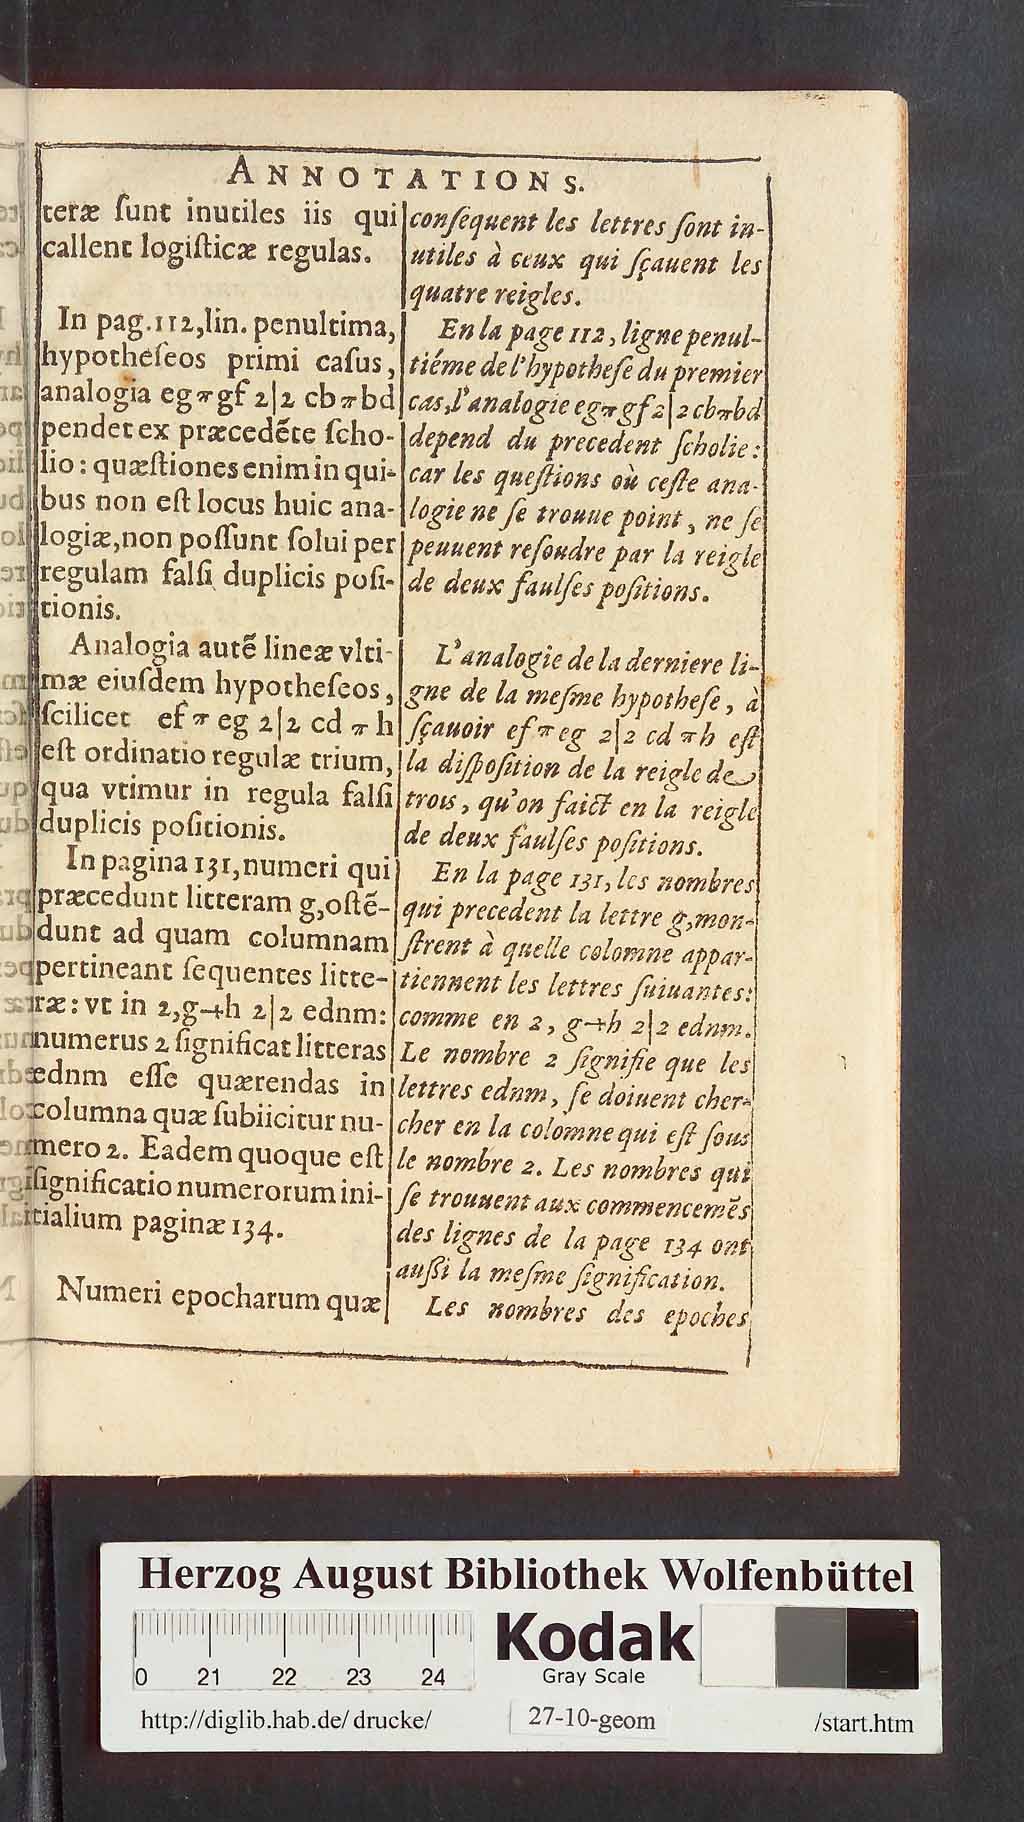 ANNOTATIONS.
teræ ſunt inutiles iis qui
callent logiſticæ regulas.
In pag. 112, lin. penultima,
hypotheſeos primi caſus,
analogia eg π gf 2|2 cb π bd
pendet ex præcedẽte ſcho-
lio : quæſtiones enim in qui-
bus non eſt locus huic ana-
logiæ, non poſſunt ſolui per
regulam falſi duplicis poſi-
tionis.
Analogia autẽ lineæ vlti-
mæ eiuſdem hypotheſeos,
ſcilicet ef π eg 2|2 cd π h
eſt ordinatio regulæ trium,
qua vtimur in regula falſi
duplicis poſitionis.
In pagina 131, numeri qui
præcedunt litteram g, oſtẽ-
dunt ad quam columnam
pertineant ſequentes litte-
ræ : vt in 2, g⊹h 2|2 ednm:
numerus 2 ſignificat litteras
ednm eſſe quærendas in
columna quæ ſubiicitur nu-
mero 2. Eadem quoque eſt
ſignificatio numerorum ini-
tialium paginæ 134.
Numeri epocharum quæ
conſequent les lettres ſont in-
utiles à ceux qui ſçauent les
quatre reigles.
En la page 112, ligne penul-
tiéme de l'hypotheſe du premier
cas, l'analogie eg π gf 2|2 cb π bd
depend du precedent ſcholie:
car les queſtions où ceſte ana-
logie ne ſe trouue point, ne ſe
peuuent reſoudre par la reigle
de deux faulſes poſitions.
L'analogie de la derniere li-
gne de la meſme hypotheſe, à
ſçauoir ef π eg 2|2 cd π h eſt
la diſpoſition de la reigle de
trois, qu'on faict en la reigle
de deux faulſes poſitions.
En la page 131, les nombres
qui precedent la lettre g, mon-
ſtrent à quelle colomne appar-
tiennent les lettres ſuiuantes:
comme en 2, g⊹h 2|2 ednm.
Le nombre 2 ſignifie que les
lettres ednm, ſe doiuent cher-
cher en la colomne qui eſt ſous
le nombre 2. Les nombres qui
ſe trouuent aux commencemẽs
des lignes de la page 134 ont
auſſi la meſme ſignification.
Les nombres des epoches
Herzog August Bibliothek Wolfenbüttel
0 21 22 23 24
Kodak
Gray Scale
http://diglib.hab.de/drucke/
27-10-geom
/start.htm